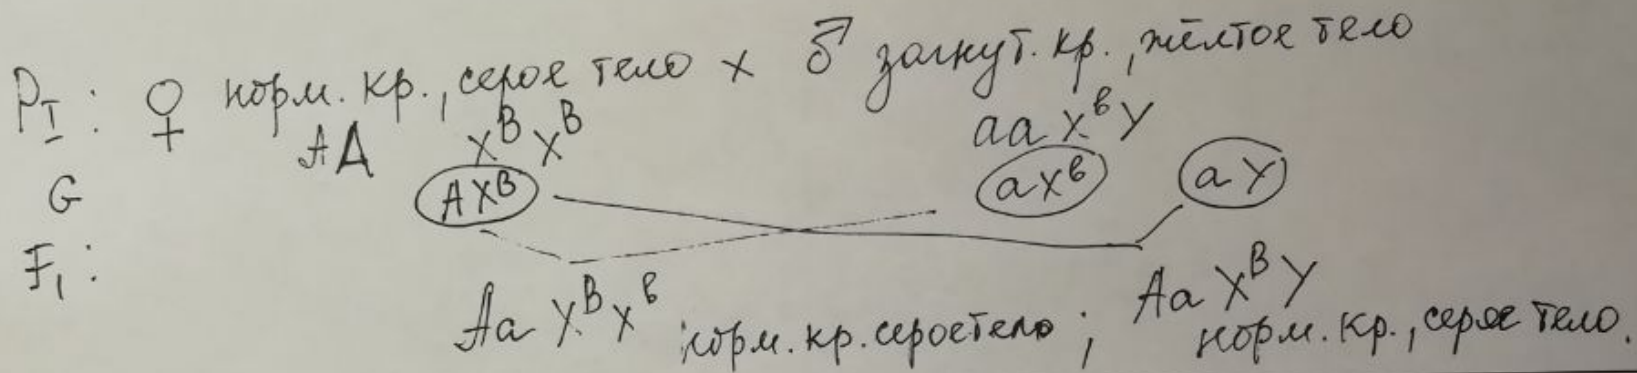 P_I : ♀ норм. кр., серое тело x ♂ загнут. кр., жёлтое тело
AA X^B X^B aa X^в Y
G AX^B aX^в aY
F_1 :
Aa X^B X^в норм. кр. серое тело ; Aa X^B Y норм. кр., серое тело.